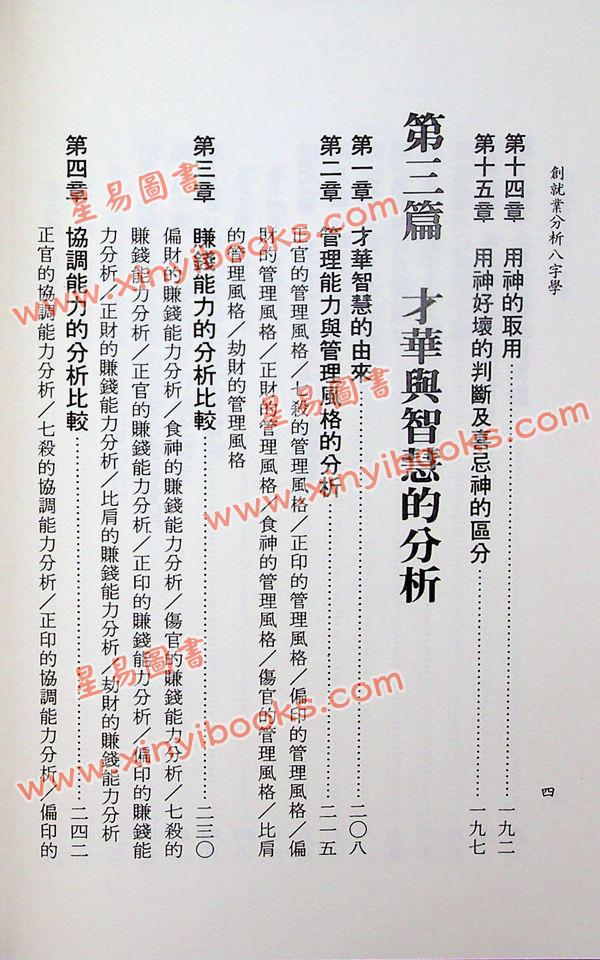 創就業分析八字學
四
第十四章　用神的取用……一九二
第十五章　用神好壞的判斷及喜忌神的區分……一九七
第三篇　才華與智慧的分析
第一章　才華智慧的由來……二〇八
第二章　管理能力與管理風格的分析……二一五
正官的管理風格／七殺的管理風格／正印的管理風格／偏印的管理風格／偏
財的管理風格／正財的管理風格／食神的管理風格／傷官的管理風格／比肩
的管理風格／劫財的管理風格
第三章　賺錢能力的分析比較……二三〇
偏財的賺錢能力分析／食神的賺錢能力分析／傷官的賺錢能力分析／七殺的
賺錢能力分析／正官的賺錢能力分析／正印的賺錢能力分析／偏印的賺錢能
力分析／正財的賺錢能力分析／比肩的賺錢能力分析／劫財的賺錢能力分析
第四章　協調能力的分析比較……二四二
正官的協調能力分析／七殺的協調能力分析／正印的協調能力分析／偏印的
星易圖書
www.xinyibooks.com
星易圖書
www.xinyibooks.com
星易圖書
www.xinyibooks.com